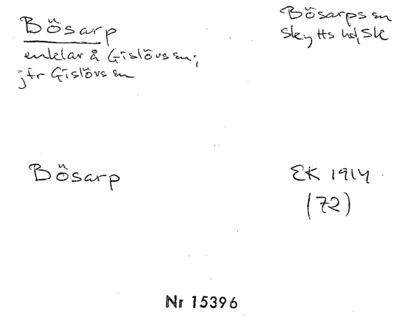 Bösarp
enklar å Gislövs sn;
jfr Gislövs sn
Bösarps sn
Skytts hd, Sk
Bösarp
EK 1914
(72)
Nr 15396